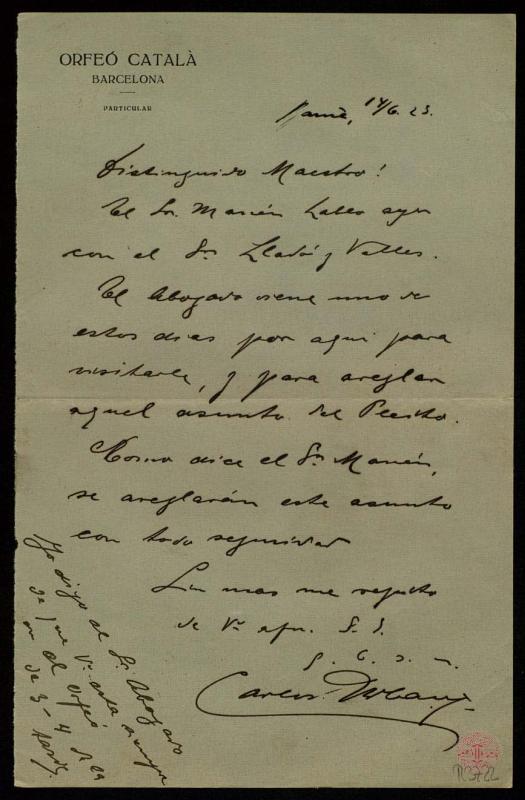 ORFEÓ CATALÀ
BARCELONA
PARTICULAR
14/6. 23.
Distinguido Maestro!
El Sr. Manén hablo ayer
con el Sr. Lladó y Valles.
El Abogado viene uno de
estos dias por aqui para
visitarle, y para areglar
aquel asunto del Pleito.
Como dice el Sr. Manén,
se areglarán este asunto
con toda seguridad
Sin mas me repito
de Vd. afm. S. S.
Carlos
Yo digo al Sr. Abogado
de que Vd. esta siempre
en el Orfeó
de 3 - 4 de la
tarde